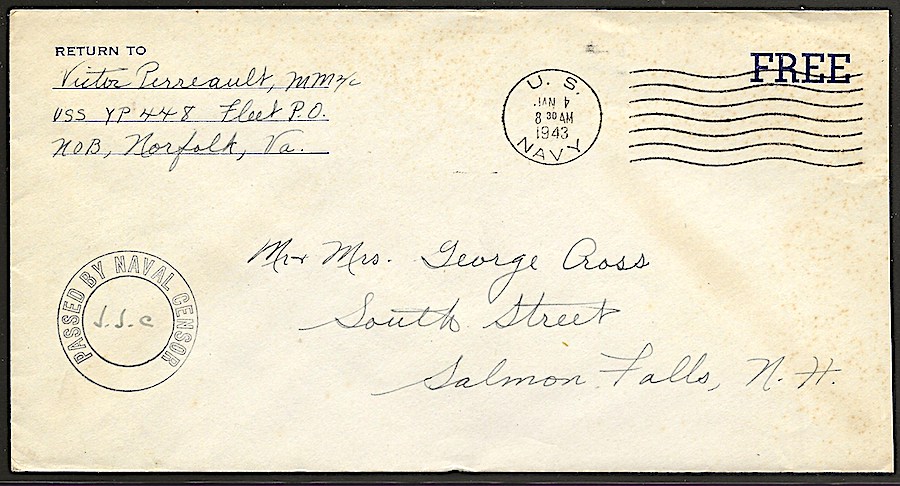 RETURN TO
Victor Perreault, MM2/c
USS YP 448 Fleet P.O.
NOB, Norfolk, Va.
U. S.
JAN
8 30 AM
1943
NAVY
FREE
PASSED BY NAVAL CENSOR
J.J.C
Mr + Mrs. George Cross
South Street
Salmon Falls, N. H.